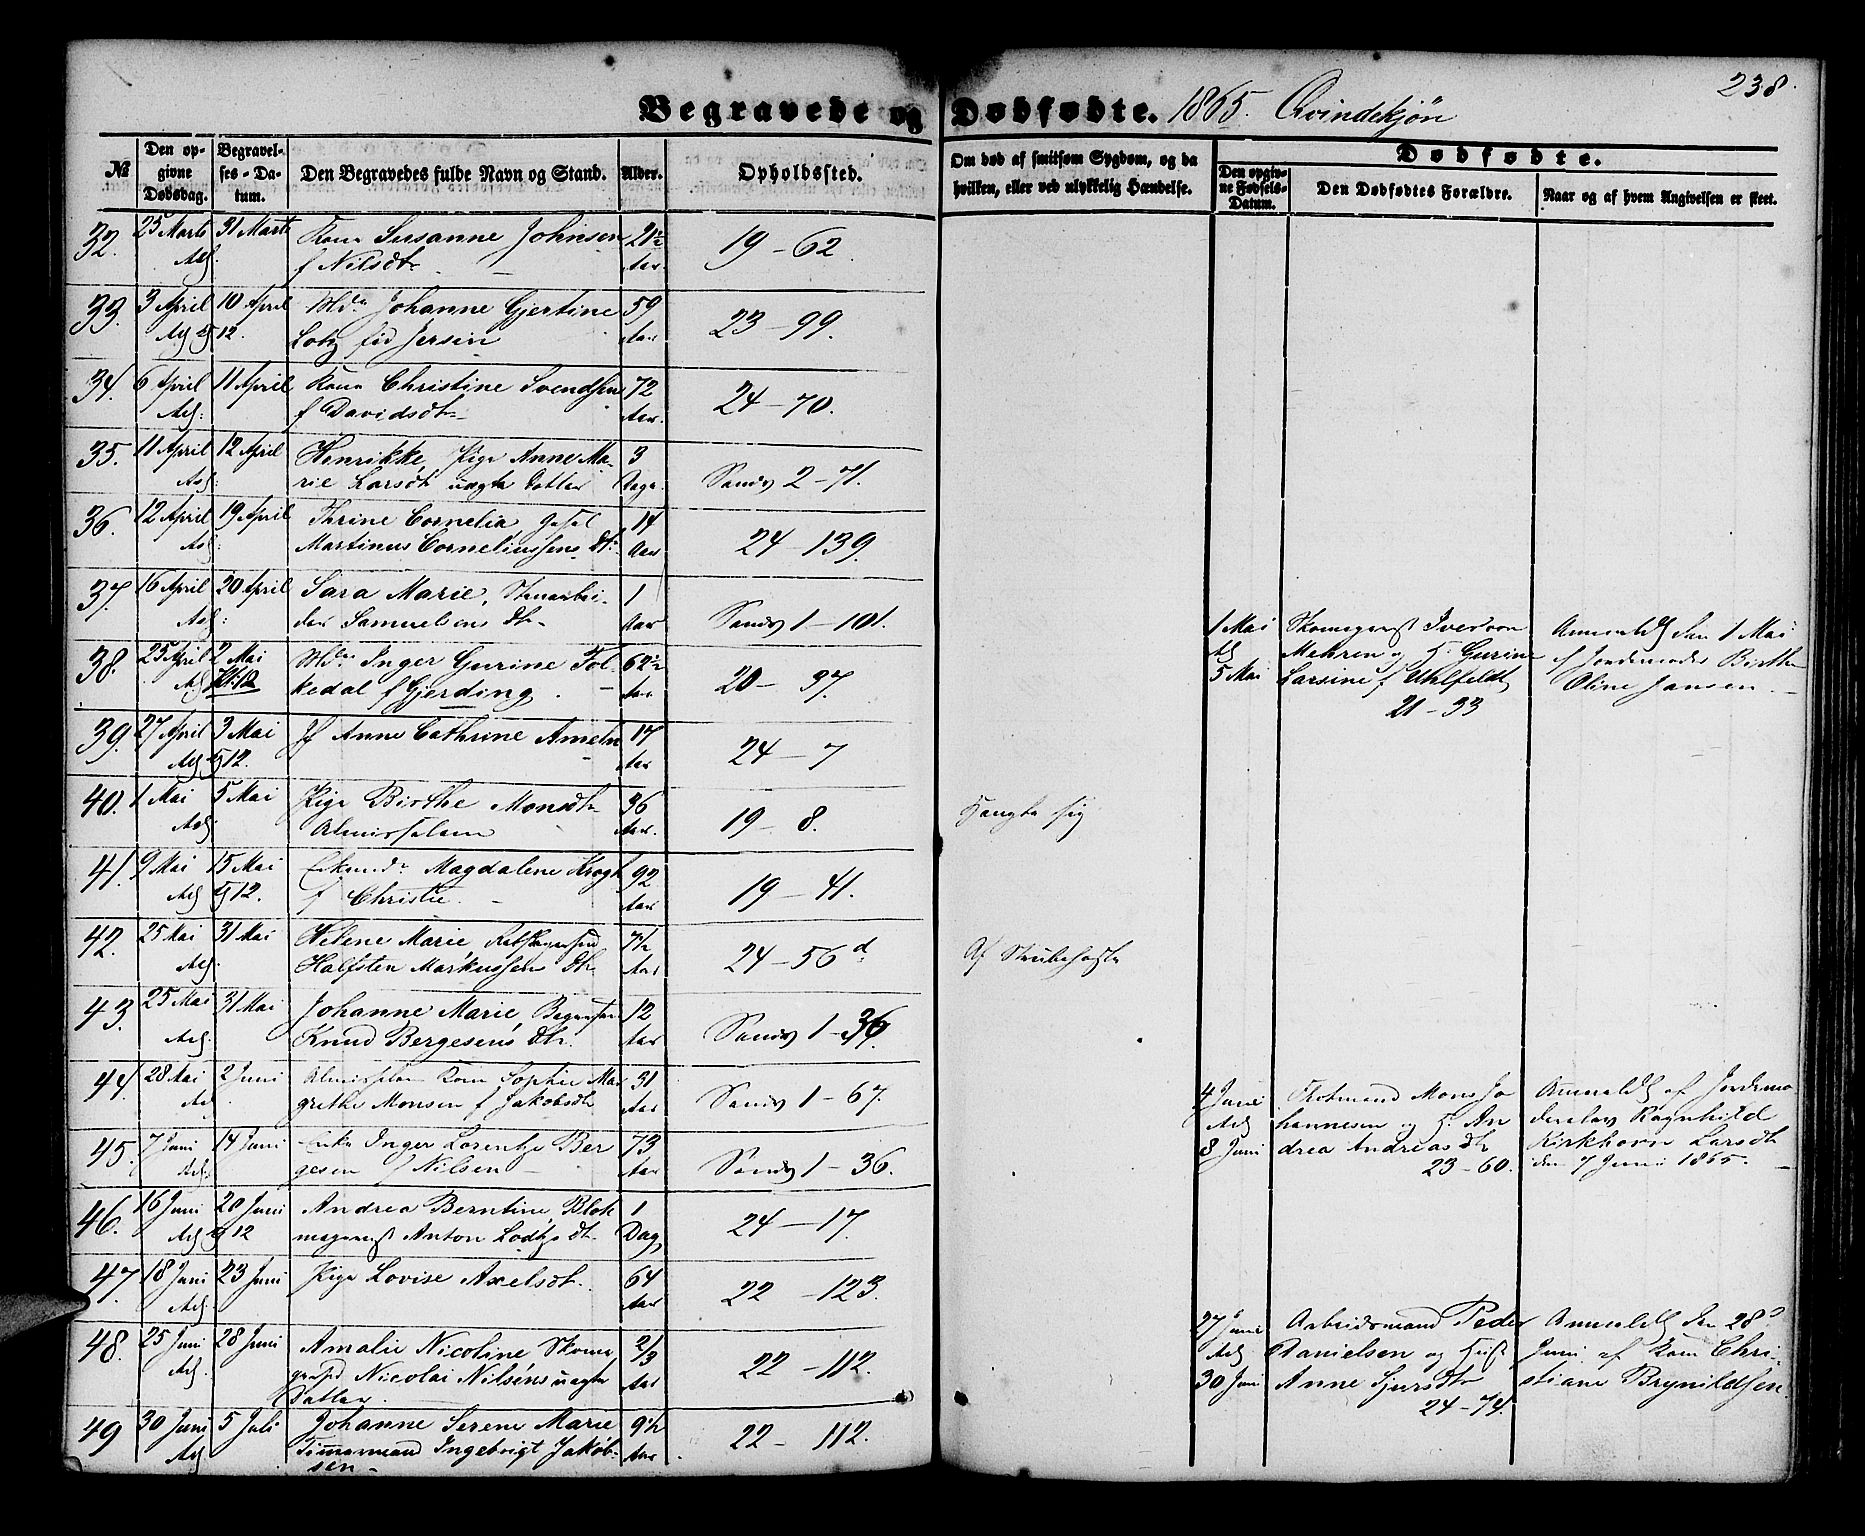 238.
Begravede og Dødfødte. 1865. Qvindekjön
№
Den op-
givne
Dødsdag.
Begravel-
ses-Da-
tum.
Den Begravedes fulde Navn og Stand.
Alder.
Opholdssted.
Om død af smitsom Sygdom, og da
hvilken, eller ved ulykkelig Hændelse.
Dødfødte.
Den opgiv-
ne Fødsels-
Datum.
Den Dødfødtes Forældre.
Naar og af hvem Angivelsen er skeet.
32. 25 Marts 31 Marts Kone Susanne Johnsen 21½ 19-62.
f Nilsdtr Aar.
33. 3 April 10 April Md. Johanne Gjertine 59 23-99.
12. Lotz fød Jersin Aar
34. 6 April 11 April Kone Christine Svendsen 72 24-70.
f Davidsdtr Aar.
35. 11 April 12 April Henrikke, Pige Anne Ma- 3 Sandv 2-71.
rie Larsdt uægte Datter Dage.
36. 12 April 19 April Thrine Cornelia 14 24-139.
Martinus Corneliussens Dtr Aar
37. 16 April 20 April Sara Marie, Stenarbei- 1 Sandv 1-101.
der Samuelsens Dtr Aar
38. 25 April 2 Mai Md. Inger Gurine Fol- 62½ 20-37.
kedal f Gjerding. Aar
39. 27 April 3 Mai Jf Anne Cathrine Ameln 17 24-7
12. Aar
40. 1 Mai 5 Mai Pige Birthe Monsdtr 36 19-8. Hængte sig
Almisselem Aar.
41. 9 Mai 15 Mai Magdalene Krogh 92 19-41.
12. f Christie. Aar
42. 25 Mai 31 Mai Helene Marie, 7½ 24-56 d Af Strubehoste
Halfsten Markussens Dtr Aar
43. 25 Mai 31 Mai Johanne Marie 12 Sandv 1-36.
Knud Bergesens Dtr. Aar
44. 28 Mai 2 Juni Almisselem Kone Sophie Mar 31 Sandv 1-67.
grethe Monsen f Jakobsdtr Aar
45. 7 Juni 14 Juni Enke Inger Lorentze Ber 73 Sandv 1-36.
gesen f Nilsen Aar
46. 16 Juni 20 Juni Andrea Berntine, Blok 1 24-17.
12 magersvd Anton Lodtz Dtr. Dag
47. 18 Juni 23 Juni Pige Lovise Axelsdtr. 64 22-123.
Aar
48. 25 Juni 28 Juni Amalie Nicoline Skoma 2/3 22-112.
Nicolai Nilsens uægte Aar
Datter.
49 30 Juni 5 Juli Johanne Serene Marie 9½ 22-112.
Tømmermand Ingebrigt Jakob- Aar
sen
1 Mai Skomagersvd Iver von Anmeldt den 1 Mai
Mehren og H. Gurine af Jordemoder Birthe
5 Mai Larsine f Uhlfeldt Oline Jansen.
21-33
4 Juni Mons Jo Anmeldt af Jordemo
hannesen og H. An Ragnhild
8 Juni drea Andreasdtr Kirkhorn Larsdt
23-60. den 7 Juni 1865.
27 Juni Arbeidsmand Peder Anmeldt den 28d
Danielsen og Hust Juni af Kone Chri-
30 Juni Anne Sjursdtr stiane Brynildsen
24-74.